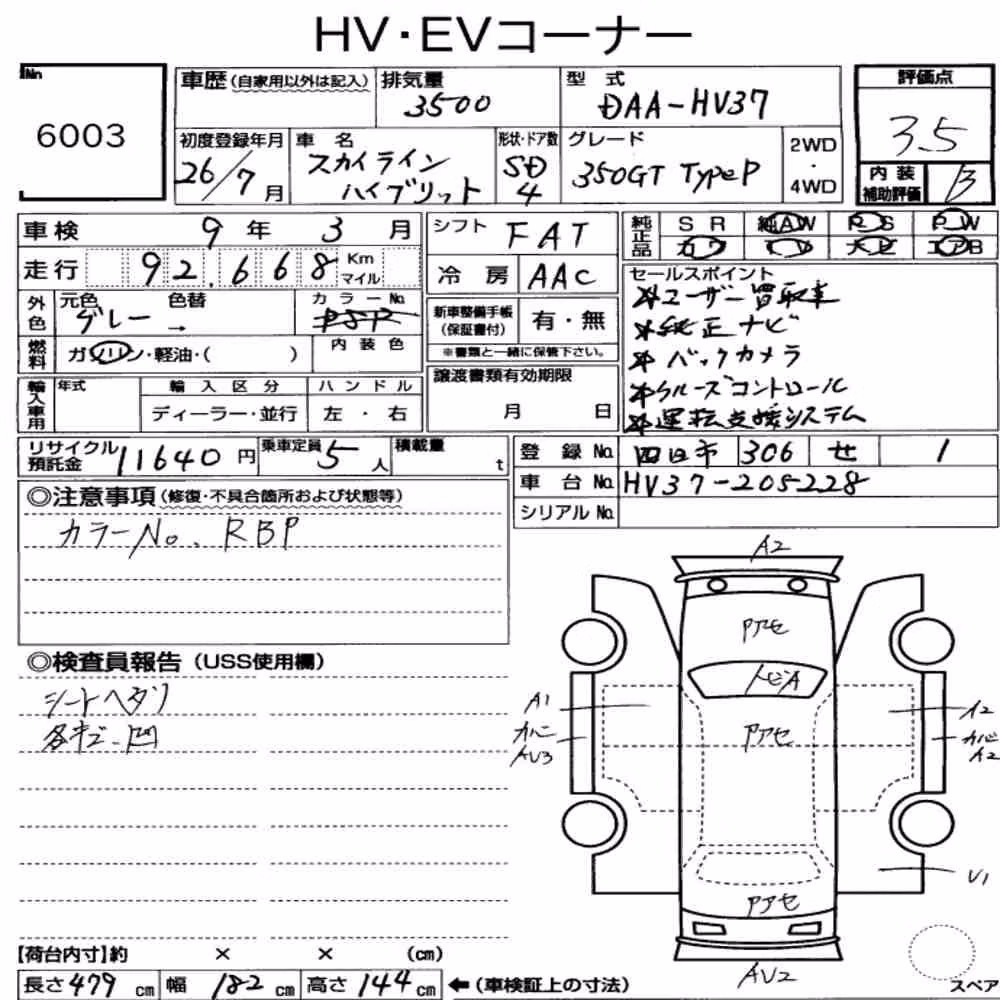 HV・EVコーナー
No
6003
車歴 (自家用以外は記入)
排気量
3500
型式
DAA-HV37
評価点
3.5
内装
補助評価
B
初度登録年月
26/7月
車名
スカイライン
ハイブリット
形状・ドア数
SD
4
グレード
350GT TypeP
2WD
・
4WD
車検 9年 3月
走行 92,668 Km
マイル
シフト FAT
冷房 AAC
純正品
SR 純AW PS PW
カワ ナビ TV エアB
外色
元色 色替
グレー →
カラーNo.
内装色
燃料
ガソリン・軽油・( )
新車整備手帳
(保証書付)
有・無
※書類と一緒に保管下さい。
譲渡書類有効期限
月 日
セールスポイント
※ユーザー買取車
※純正ナビ
※バックカメラ
※クルーズコントロール
※運転支援システム
輸入車用
年式
輸入区分
ディーラー・並行
ハンドル
左・右
リサイクル
預託金
11640円
乗車定員
5人
積載量
t
登録No. 四日市 306 せ 1
車台No. HV37-205228
シリアルNo.
◎注意事項 (修復・不具合箇所および状態等)
カラーNo. RBP
◎検査員報告 (USS使用欄)
シートヘタリ
各キズ、凹
A2
Pアセ
トビA
A1
カバー
AV3
Pアセ
A2
カバー
A2
U1
Pアセ
AU2
スペア
【荷台内寸】約 × × (cm)
長さ 479 cm 幅 182 cm 高さ 144 cm ←(車検証上の寸法)